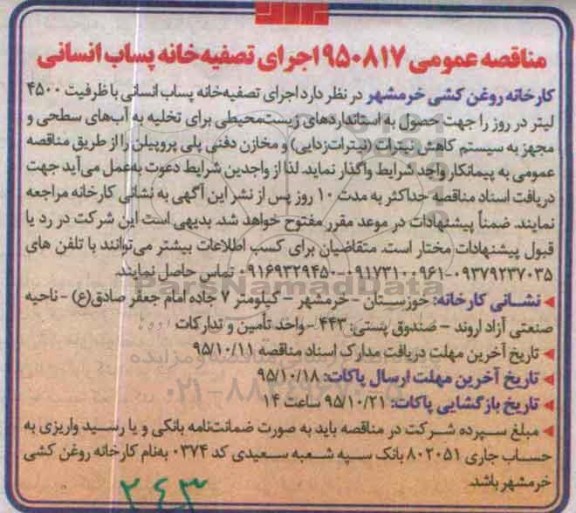 مناقصه عمومی ۹۵۰۸۱۷ اجرای تصفیه‌خانه پساب انسانی
کارخانه روغن کشی خرمشهر در نظر دارد اجرای تصفیه‌خانه پساب انسانی با ظرفیت ۴۵۰۰
لیتر در روز را جهت حصول به استانداردهای زیست‌محیطی برای تخلیه به آب‌های سطحی و
مجهز به سیستم کاهش نیترات (نیترات‌زدایی) و مخازن دفنی پلی پروپیلن را از طریق مناقصه
عمومی به پیمانکار واجد شرایط واگذار نماید. لذا از واجدین شرایط دعوت به‌عمل می‌آید جهت
دریافت اسناد مناقصه حداکثر به مدت ۱۰ روز پس از نشر این آگهی به نشانی کارخانه مراجعه
نمایند. ضمناً پیشنهادات در موعد مقرر مفتوح خواهد شد. بدیهی است این شرکت در رد یا
قبول پیشنهادات مختار است. متقاضیان برای کسب اطلاعات بیشتر می‌توانند با تلفن های
۰۹۳۷۹۲۳۷۰۳۵-۰۹۱۷۳۱۰۰۹۶۱-۰۹۱۶۹۳۲۹۴۵۰ تماس حاصل نمایند.
نشانی کارخانه: خوزستان - خرمشهر - کیلومتر ۷ جاده امام جعفر صادق(ع) - ناحیه
صنعتی آزاد اروند - صندوق پستی: ۴۴۳ - واحد تأمین و تدارکات
تاریخ آخرین مهلت دریافت مدارک اسناد مناقصه ۹۵/۱۰/۱۱
تاریخ آخرین مهلت ارسال پاکات: ۹۵/۱۰/۱۸
تاریخ بازگشایی پاکات: ۹۵/۱۰/۲۱ ساعت ۱۴
مبلغ سپرده شرکت در مناقصه باید به صورت ضمانت‌نامه بانکی و یا رسید واریزی به
حساب جاری ۸۰۲۰۵۱ بانک سپه شعبه سعیدی کد ۰۳۷۴ به‌نام کارخانه روغن کشی
خرمشهر باشد.
۲۴۳
ParsNamadData